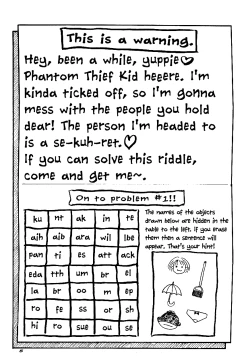 This is a warning.
Hey, been a while, yuppie♡
Phantom Thief Kid heeere. I'm
kinda ticked off, so I'm gonna
mess with the people you hold
dear! The person I'm headed to
is a se-kuh-ret.♡
If you can solve this riddle,
come and get me~.
On to problem #1!!
ku nt ak in te
aih aib ara wil lbe
pan ti es att ack
eda tth um br el
la br oo m ep
ro fe ss or sh
hi ro sue ou se
The names of the objects
drawn below are hidden in the
table to the left. If you erase
them then a sentence will
appear. That's your hint!